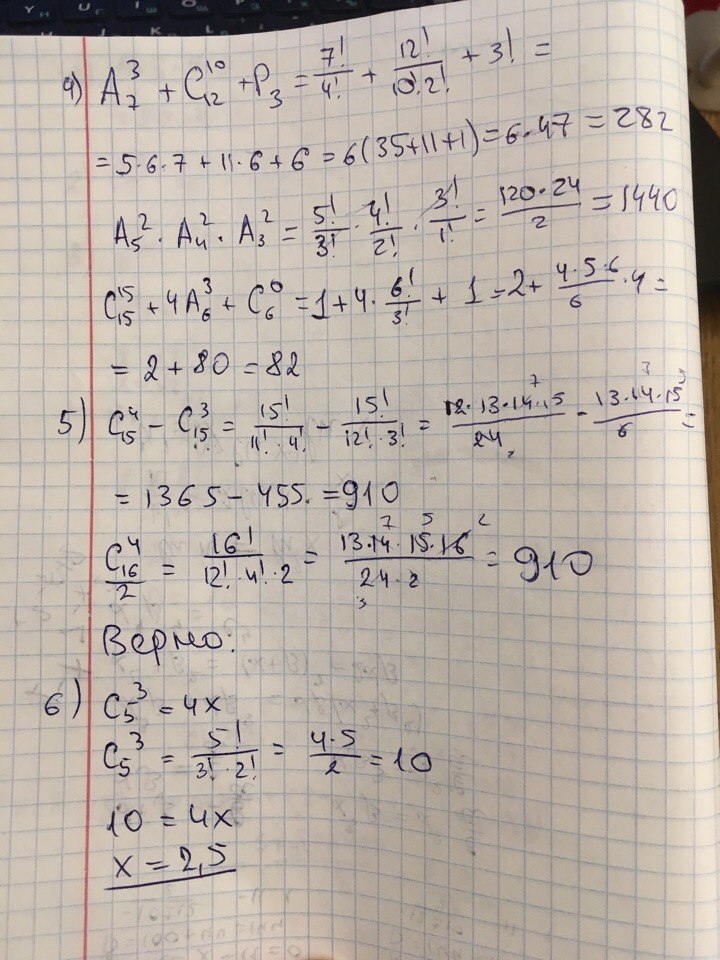 4) A₇³ + C₁₂¹⁰ + P₃ = 7!/4! + 12!/(10!·2!) + 3! =
= 5·6·7 + 11·6 + 6 = 6(35+11+1) = 6·47 = 282
A₅² · A₄² · A₃² = 5!/3! · 4!/2! · 3!/1! = 120·24/2 = 1440
C₁₅¹⁵ + 4A₆³ + C₆⁰ = 1 + 4 · 6!/3! + 1 = 2 + 4·5·6/6 · 4 =
= 2 + 80 = 82
5) C₁₅⁴ − C₁₅³ = 15!/(11!·4!) − 15!/(12!·3!) = 12·13·14·15/24 − 13·14·15/6 =
= 1365 − 455. = 910
C₁₆⁴/2 = 16!/(12!·4!·2) = 13·14·15·16/(24·2) = 910
Верно.
6) C₅³ = 4x
C₅³ = 5!/(3!·2!) = 4·5/2 = 10
10 = 4x
x = 2,5